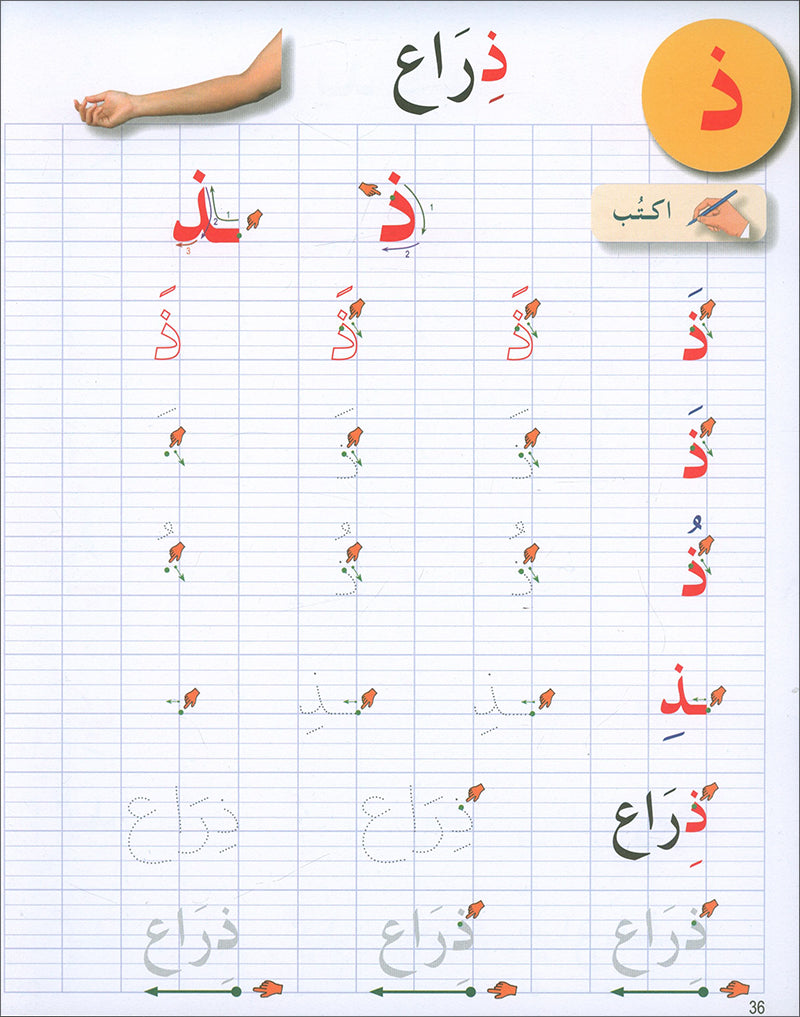 ذ ذِرَاع
اكتُب
ذ 1 2 ـذ 1 2 3
ذَ ذَ ذَ ذَ
ذَ ذَ ذَ
ذُ ذُ ذُ
ـذِ ـذِ ـذِ
ذِرَاع ذِرَاع ذِرَاع
ذِرَاع ذِرَاع ذِرَاع
36